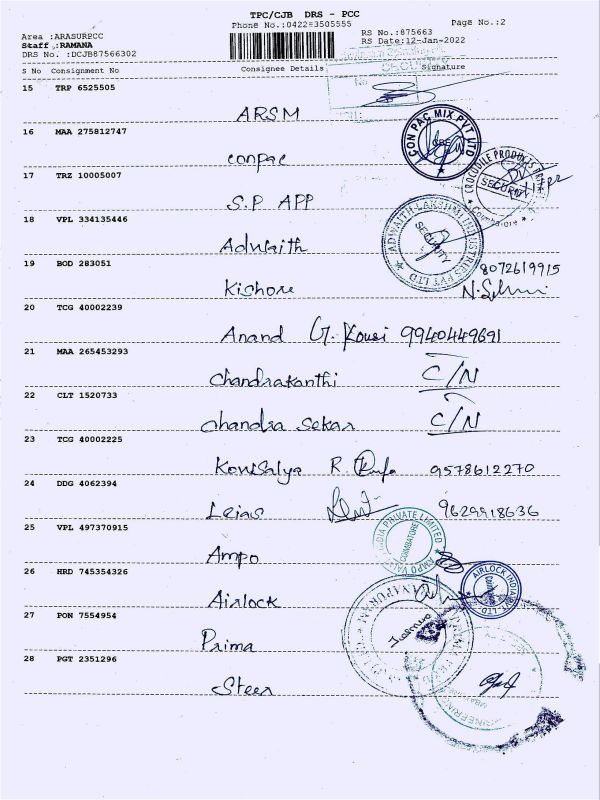 TPC/CJB DRS - PCC
Phone No.:0422=3505555
Page No.:2
Area :ARASURPCC
Staff :RAMANA
DRS No. :DCJB87566302
RS No.:875663
RS Date:12-Jan-2022
S No Consignment No Consignee Details Signature
SECURITY
No
15 TRP 6525505
ARSM
16 MAA 275812747
conpac
CON PAC MIX PVT LTD
CBE
17 TRZ 10005007
S.P APP
CROCODILE PRODUCTS
SECURITY
Coimbatore
18 VPL 334135446
Adwaith
ADWAITH LAKSHMI INDUSTRIES PVT LTD
SECURITY
19 BOD 283051
Kishore
8072619915
20 TCG 40002239
Anand G. Kousi 9940449691
21 MAA 265453293
Chandrakanthi C/N
22 CLT 1520733
Chandra Sekar C/N
23 TCG 40002225
Kowsalya R. 9578612270
24 DDG 4062394
9629918636
25 VPL 497370915
Ampo
INDIA PRIVATE LIMITED
AMPO
COIMBATORE
26 HRD 745354326
Airlock
AIRLOCK INDIA PVT. LTD.
27 PON 7554954
Prima
28 PGT 2351296
Steer